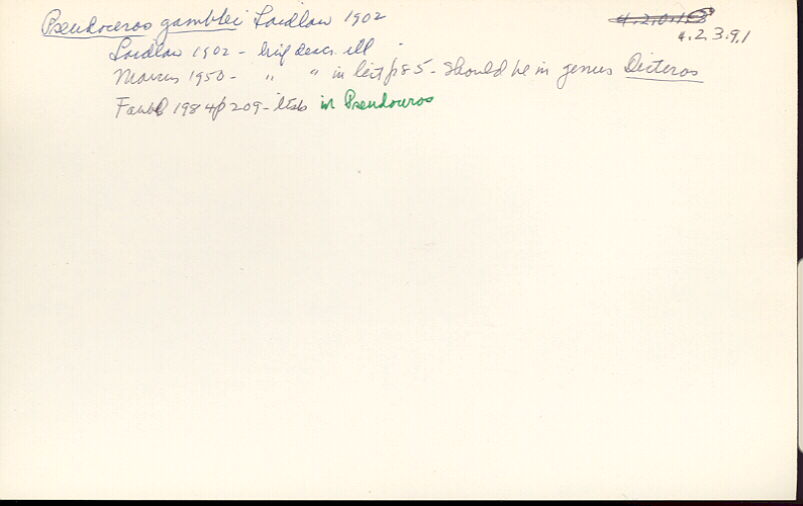 Pseudoceros gamblei Laidlaw 1902
4.2.3.9.1
Laidlaw 1902 - brief descr ill
Marcus 1950 - " " in list p85 - Should be in genus Dicteros
Faubel 1984 p 209 - lists in Pseudoceros